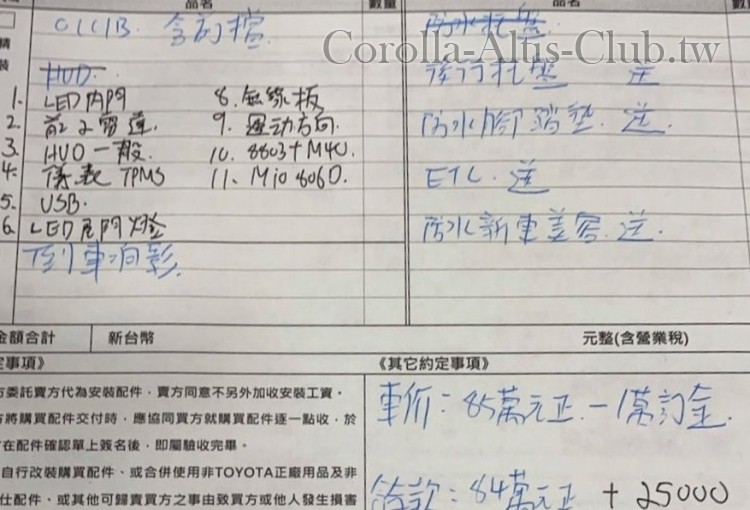 品名
數量
品名
Corolla-Altis-Club.tw
HUD
後行托盤 送
1. LED內門 8. 無線板
2. 前2窗連. 9. 運动方向.
防水腳踏墊. 送.
3. HUD一般. 10. 8803+M4U.
4. 儀表 TPMS 11. Mio 806D.
ETC. 送
5. USB.
6. LED尾門燈
防水新車美容. 送.
倒車响影.
金額合計 新台幣 元整(含營業稅)
定事項》
《其它約定事項》
方委託賣方代為安裝配件，賣方同意不另外加收安裝工資。
方將購買配件交付時，應協同買方就購買配件逐一點收，於
在配件確認單上簽名後，即屬驗收完畢。
自行改裝購買配件、或合併使用非TOYOTA正廠用品及非
仕配件、或其他可歸責買方之事由致買方或他人發生損害
車价：85萬元正 - 1萬訂金
餘款：84萬元正 + 25000